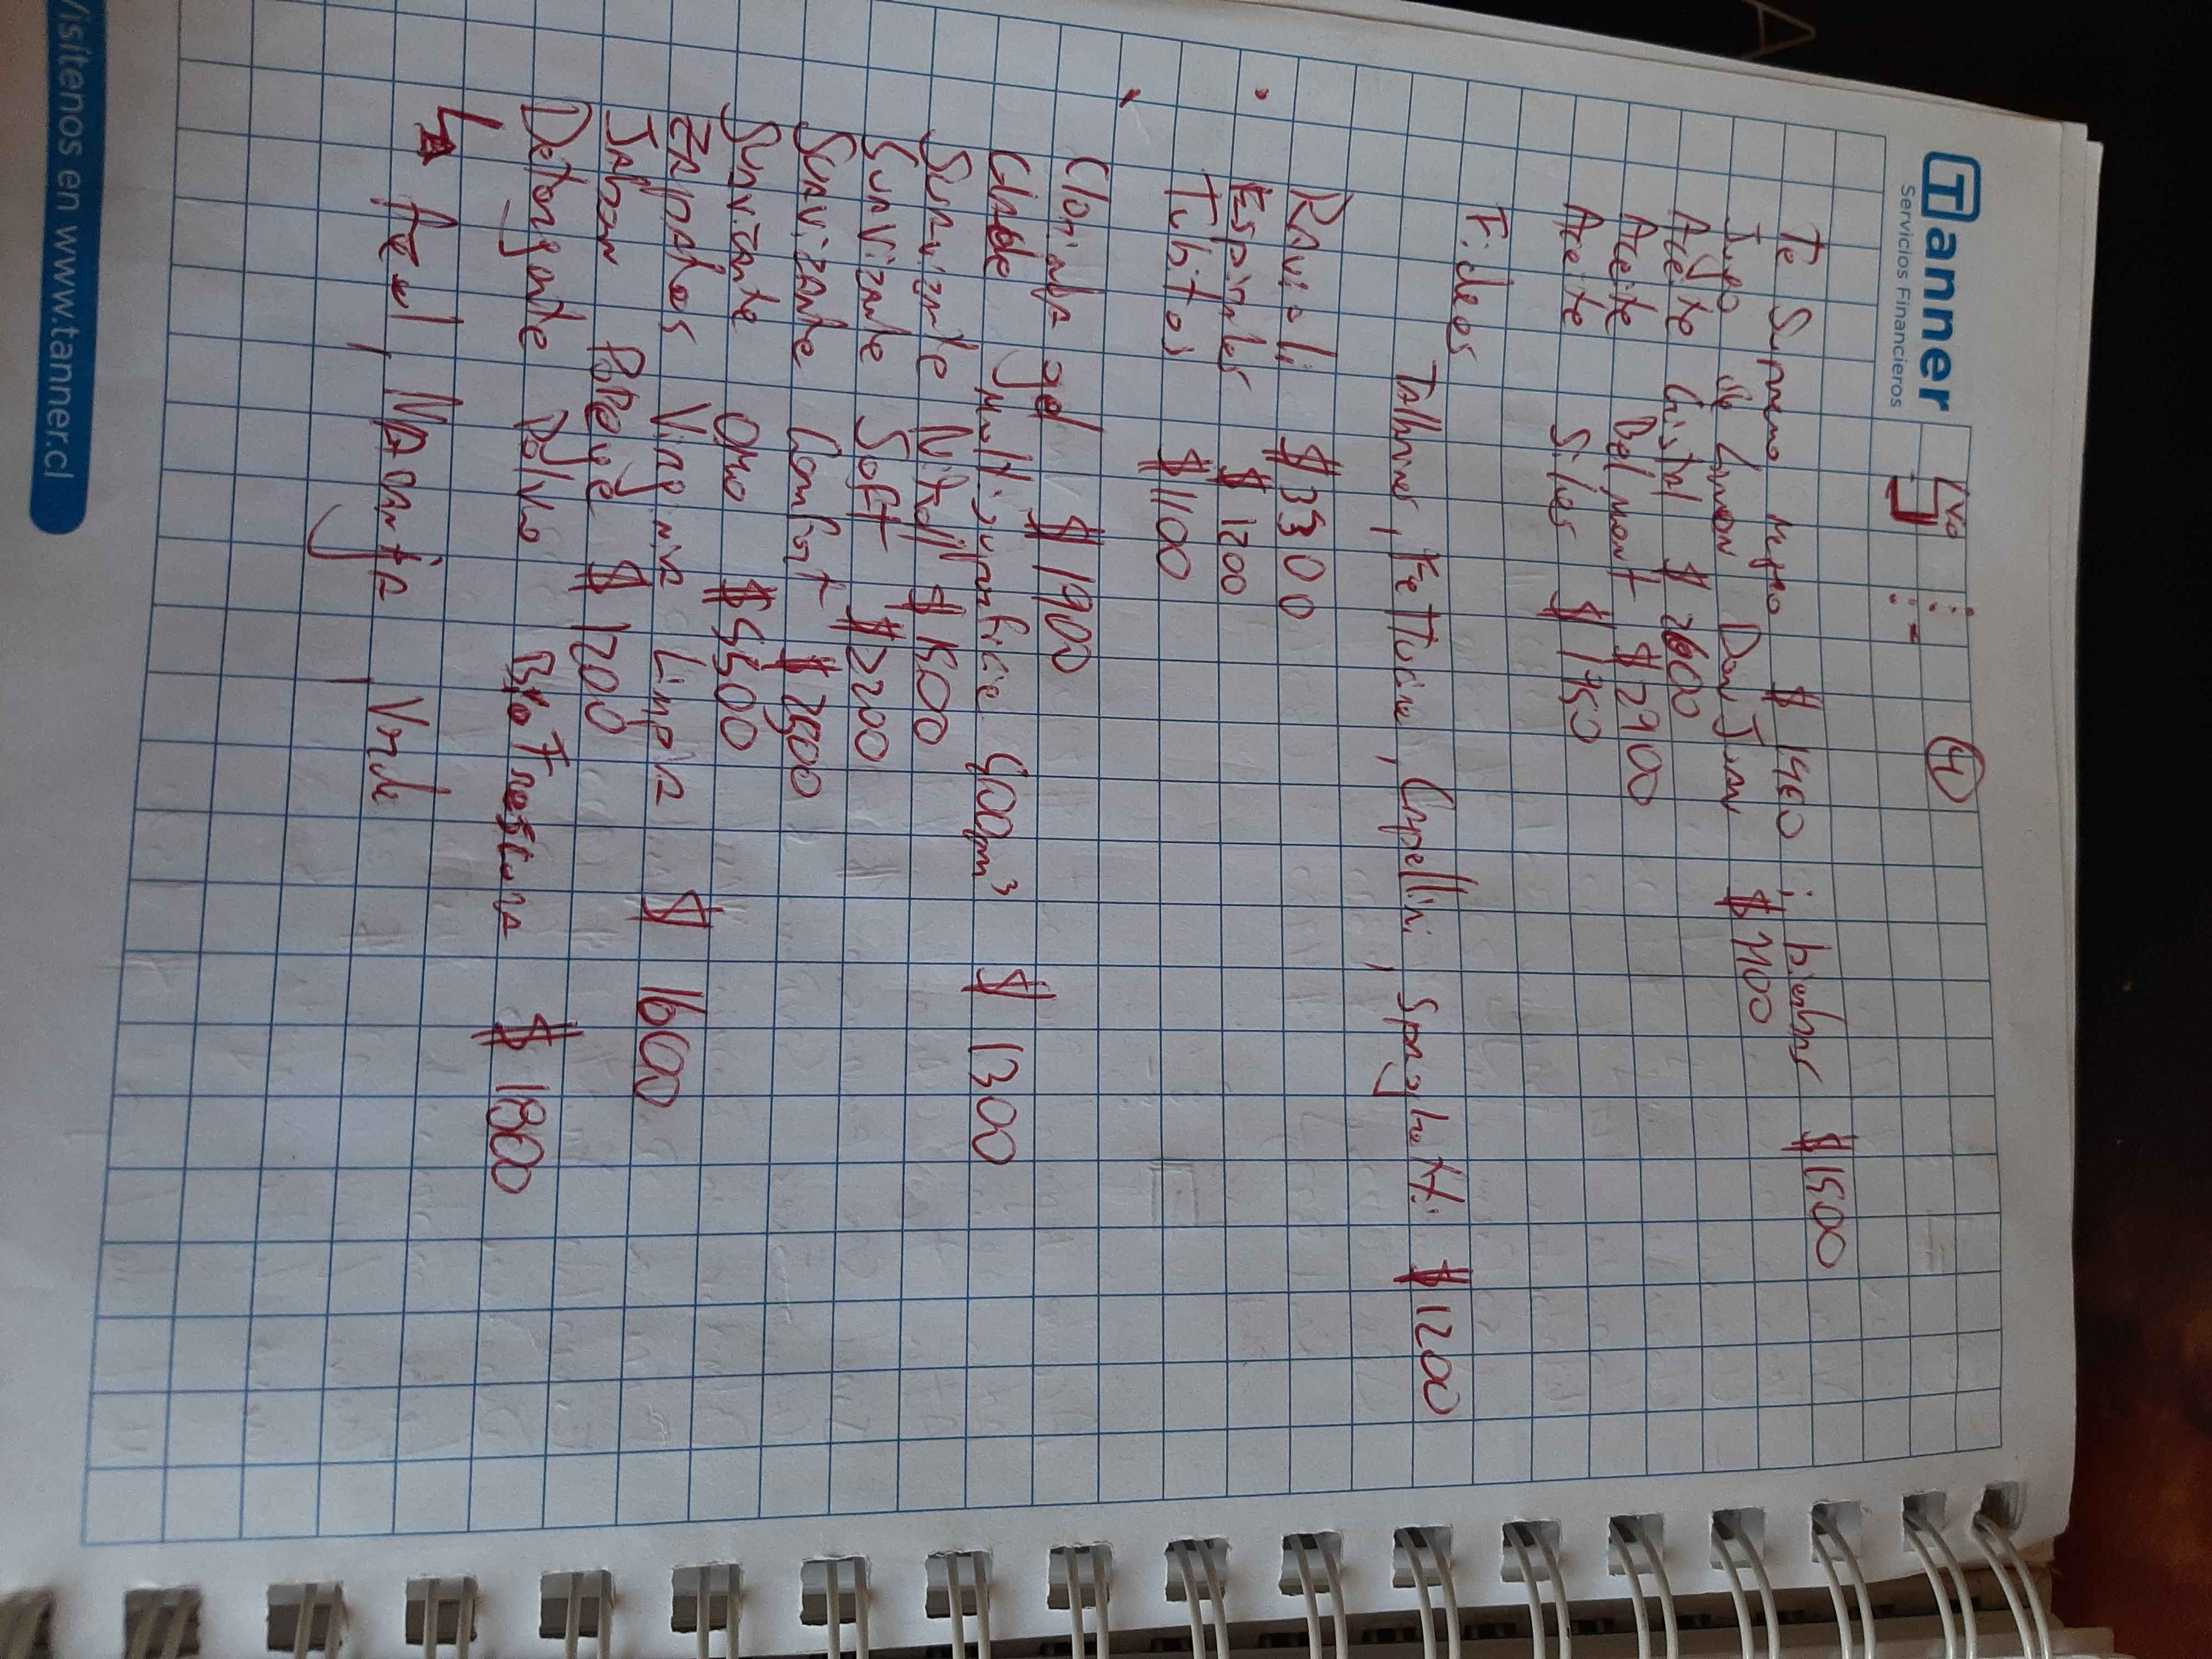 Tanner
Servicios Financieros
④
Te Supremo negro $ 1450 ; hierbas $1500
Jugo de Limon Don Juan $ 2100
Aceite Cristal $ 2600
Aceite Belmont $ 2900
Aceite Siles $ 1950
Fideos
Tallarines, Fettucine, Capellini, Spaghetti $1200
Ravioli $ 3300
Espirales $ 1200
Tubitos $ 1100
Clorinda gel $ 1900
Clade Multisuperficie 900 cm³ $ 1300
Suavizante $ 1500
Suavizante Soft $ 2200
Suavizante Comfort $ 2500
Suavizante Omo $ 5500
Zapachos Virginia Limpia $ 1600
Jabon Popeye $ 1200
Detergente Polvo Bio Frescura $ 1800
↳ Azul, Naranja, Verde
Visítenos en www.tanner.cl